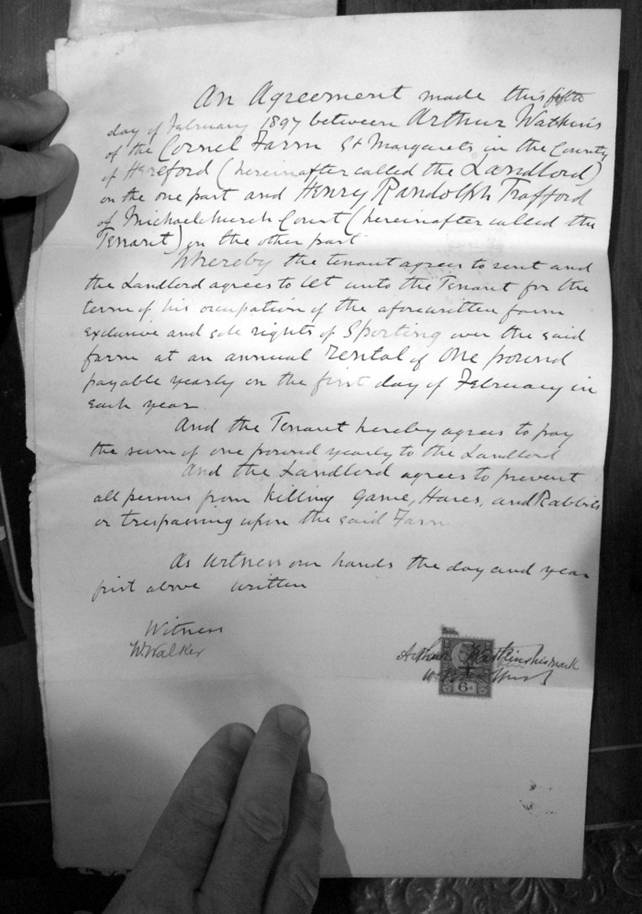 An Agreement made this fifth
day of February 1897 between Arthur Watkins
of the Cornel Farm St Margarets in the County
of Hereford (hereinafter called the Landlord)
on the one part and Henry Randolph Trafford
of Michaelchurch Court (hereinafter called the
Tenant) on the other part
Whereby the tenant agrees to rent and
the Landlord agrees to let unto the Tenant for the
term of his occupation of the aforewritten farm
exclusive and sole rights of Sporting over the said
farm at an annual rental of One pound
payable yearly on the first day of February in
each year
And the Tenant hereby agrees to pay
the sum of one pound yearly to the Landlord
And the Landlord agrees to prevent
all persons from killing Game, Hares, and Rabbits
or trespassing upon the said Farm
As witness our hands the day and year
first above written
Witness
W. Walker
Arthur Watkins his mark
6